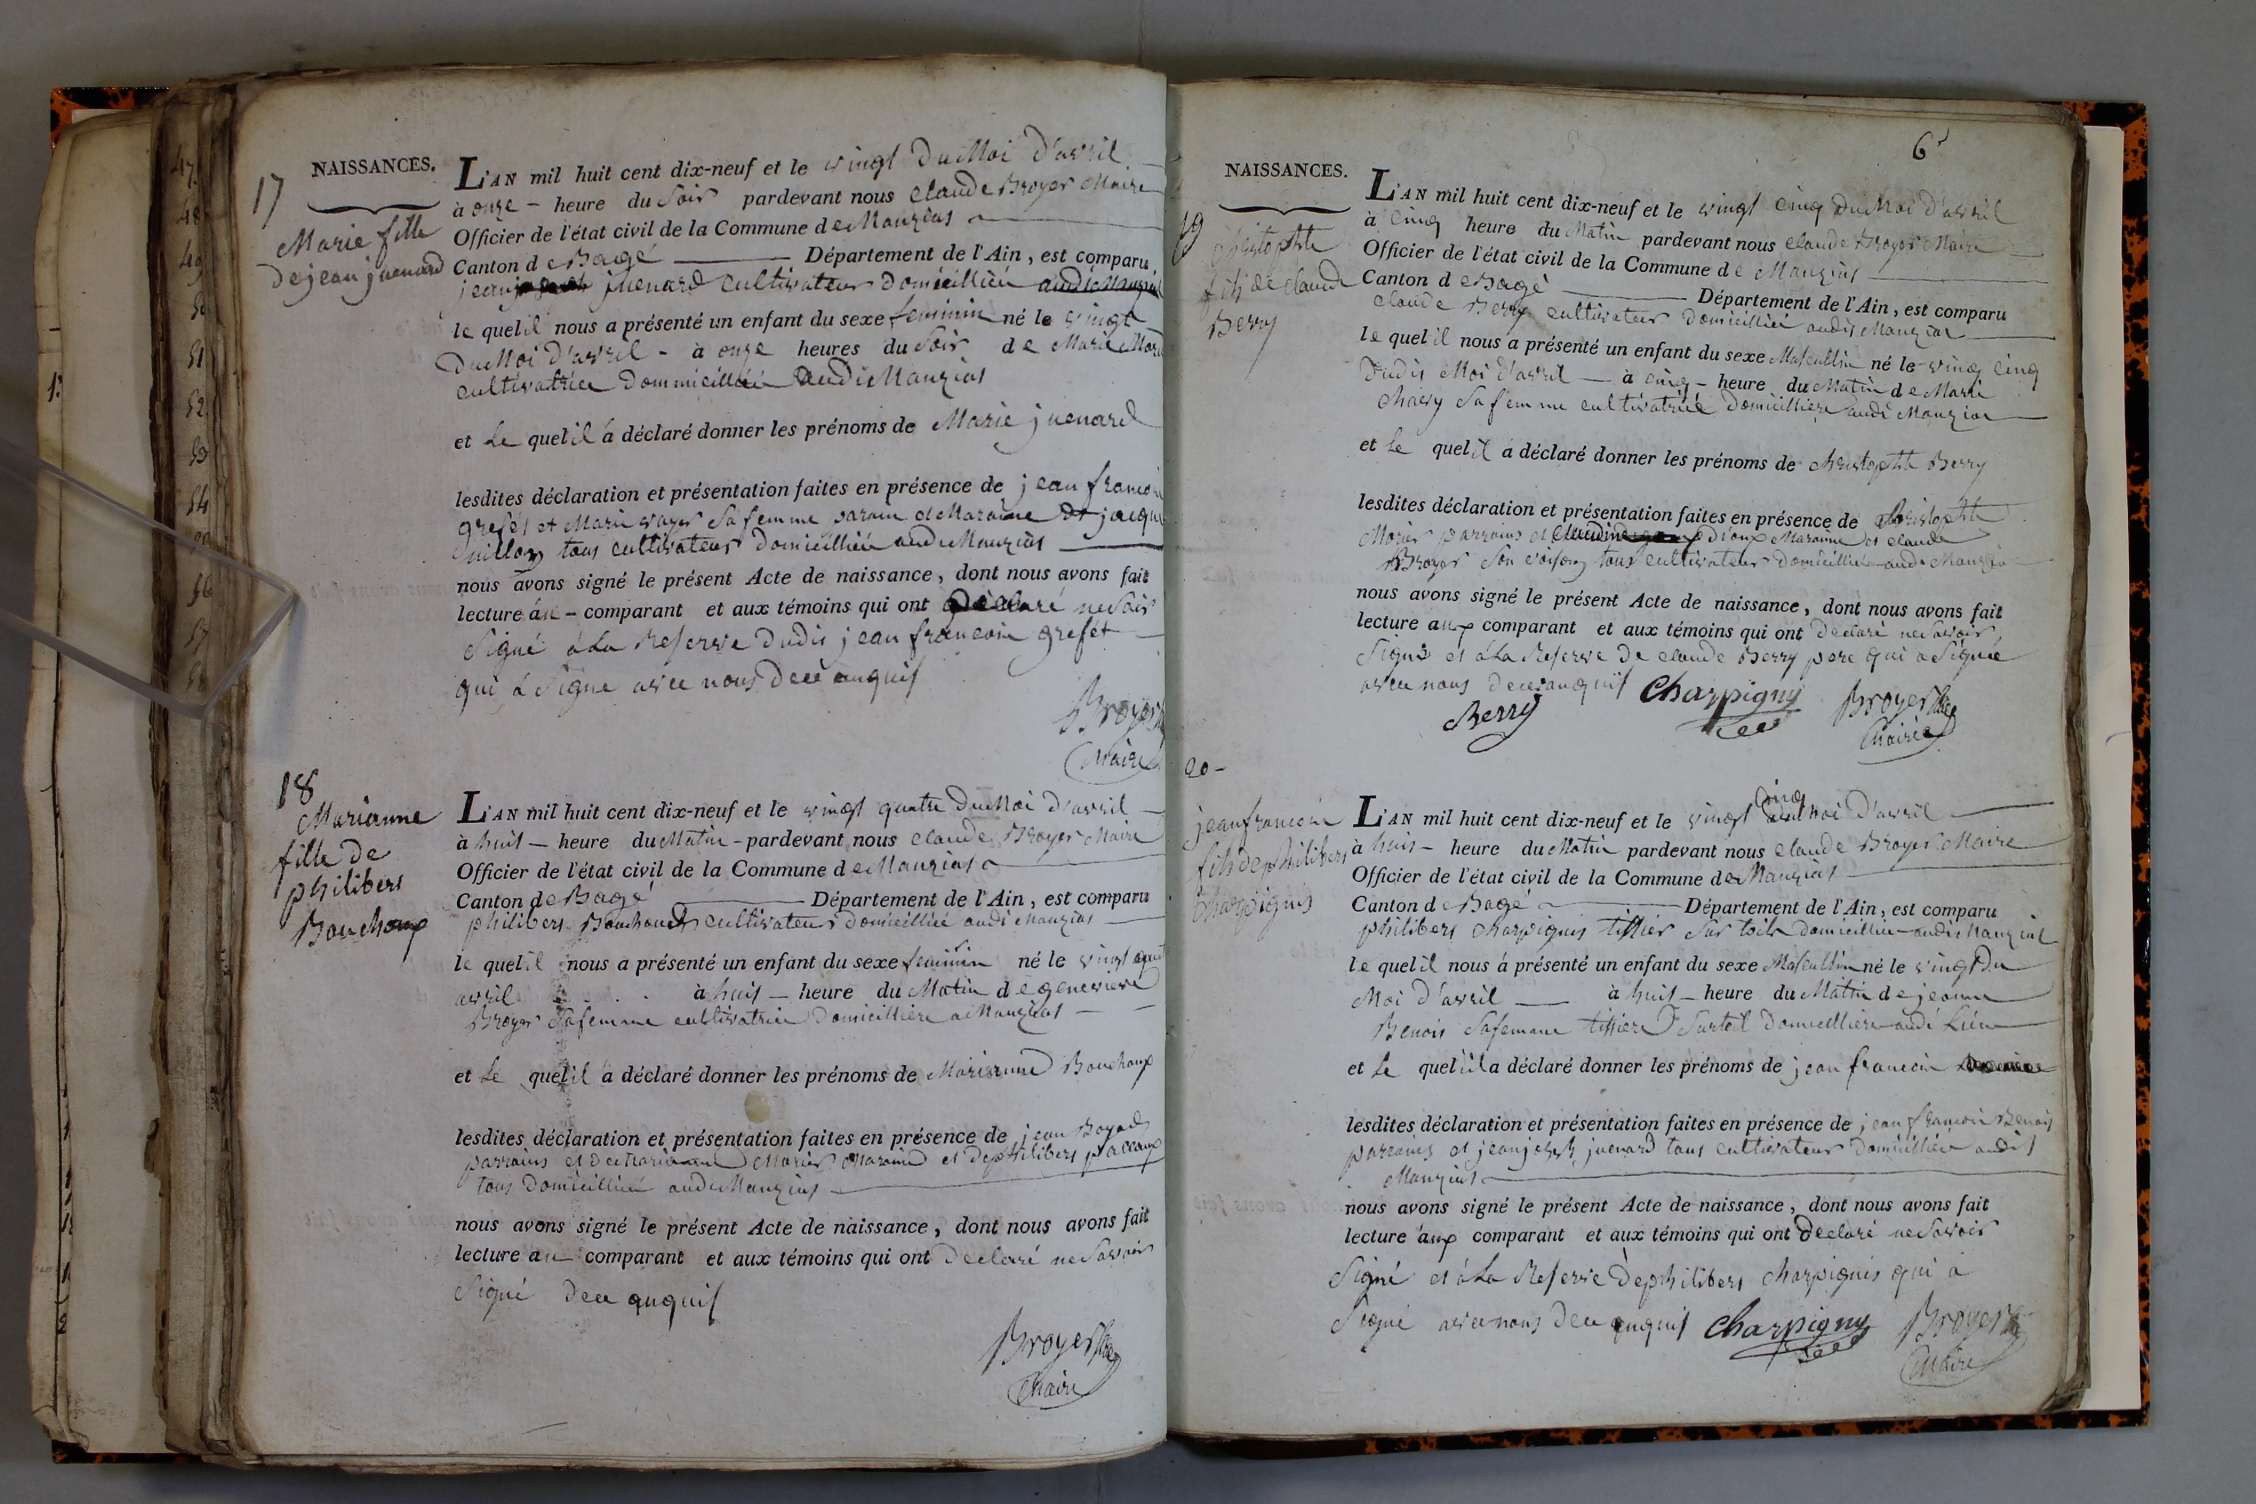 NAISSANCES.
17
Marie fille
de jean juenard
L'AN mil huit cent dix-neuf et le vingt du Moi d'avril
à onze - heure du Soir pardevant nous claude Broyer Maire
Officier de l'état civil de la Commune de Manziat
Canton de Bagé Département de l'Ain, est comparu
jean juenard cultivateur domicillié audi Manziat
le quel il nous a présenté un enfant du sexe feminin né le vingt
du Moi d'avril - à onze heures du Soir de Marie
cultivatrice dommicillié audi Manziat
et Le quel il a déclaré donner les prénoms de Marie juenard
lesdites déclaration et présentation faites en présence de jean francoi
grefét et Marie sa femme parain et Maraine et jacque
tous cultivateur domicillié audi Manziat
nous avons signé le présent Acte de naissance, dont nous avons fait
lecture au - comparant et aux témoins qui ont declaré ne Savoir
Signé á La Reserve dudit jean francoin grefét
qui á Signe avec nous dece anquis
Broyer
Maire
18
Marianne
fille de
philibert
Bouchoux
L'AN mil huit cent dix-neuf et le vingt quatre du Moi d'avril
à huit - heure du Matin - pardevant nous claude Broyer Maire
Officier de l'état civil de la Commune de Manziat
Canton de Bagé Département de l'Ain, est comparu
philibert Bouchoux cultivateur domicillié audi Manziat
le quel il nous a présenté un enfant du sexe feminin né le vingt quat
avril à huit - heure du Matin de genevieve
Broyer Sa femme cultivatrice domicilliere a Manziat
et Le quel il a déclaré donner les prénoms de Marianne Bouchoux
lesdites déclaration et présentation faites en présence de jean Boyad
parrains et de Marianne Morier Maraine et de philibert pacoux
tous domicillié audi Manziat
nous avons signé le présent Acte de naissance, dont nous avons fait
lecture au comparant et aux témoins qui ont declaré ne Savoir
Signé dece anquis
Broyer
Maire
6
NAISSANCES.
19
christophe
fils de claude
Berry
L'AN mil huit cent dix-neuf et le vingt cinq du Moi d'avril
à cinq heure du Matin pardevant nous claude Broyer Maire
Officier de l'état civil de la Commune de Manziat
Canton de Bagé Département de l'Ain, est comparu
claude Berry cultivateur domicillié audit Manziat
le quel il nous a présenté un enfant du sexe Mascullin né le vingt cinq
dudit Moi d'avril - à cinq - heure du Matin de Marie
Sa femme cultivatrice domicilliere audi Manziat
et Le quel il á déclaré donner les prénoms de christophe Berry
lesdites déclaration et présentation faites en présence de christophe
Morier parrains et claudine d'oux Maraine et claude
Broyer Son voisin tous cultivateur domicilliés audi Manziat
nous avons signé le présent Acte de naissance, dont nous avons fait
lecture aux comparant et aux témoins qui ont declaré ne Savoir
Signé et á La Reserve de claude Berry pere qui a Signé
avec nous dece anquis Charpigny Broyer
Berry Maire
20 -
jean francoin
fils de philibert
charpignis
L'AN mil huit cent dix-neuf et le vingt cinq du Moi d'avril
à huit - heure du Matin pardevant nous claude Broyer Maire
Officier de l'état civil de la Commune de Manziat
Canton de Bagé Département de l'Ain, est comparu
philibert charpignis tissier Sur toile domicillié audi Manziat
le quel il nous á présenté un enfant du sexe Mascullin né le vingt du
Moi d'avril à huit - heure du Matin de jeanne
Benoit Sa femme tissiere Sur toil domicilliere audi Lieu
et Le quel il a déclaré donner les prénoms de jean francoin
lesdites déclaration et présentation faites en présence de jean francoin Benoit
parrains et jean joseph juenard tous cultivateur domicillié audit
Manziat
nous avons signé le présent Acte de naissance, dont nous avons fait
lecture aux comparant et aux témoins qui ont declaré ne Savoir
Signé et á La Reserve de philibert charpignis qui á
Signé avec nous dece anquis Charpigny Broyer
Maire